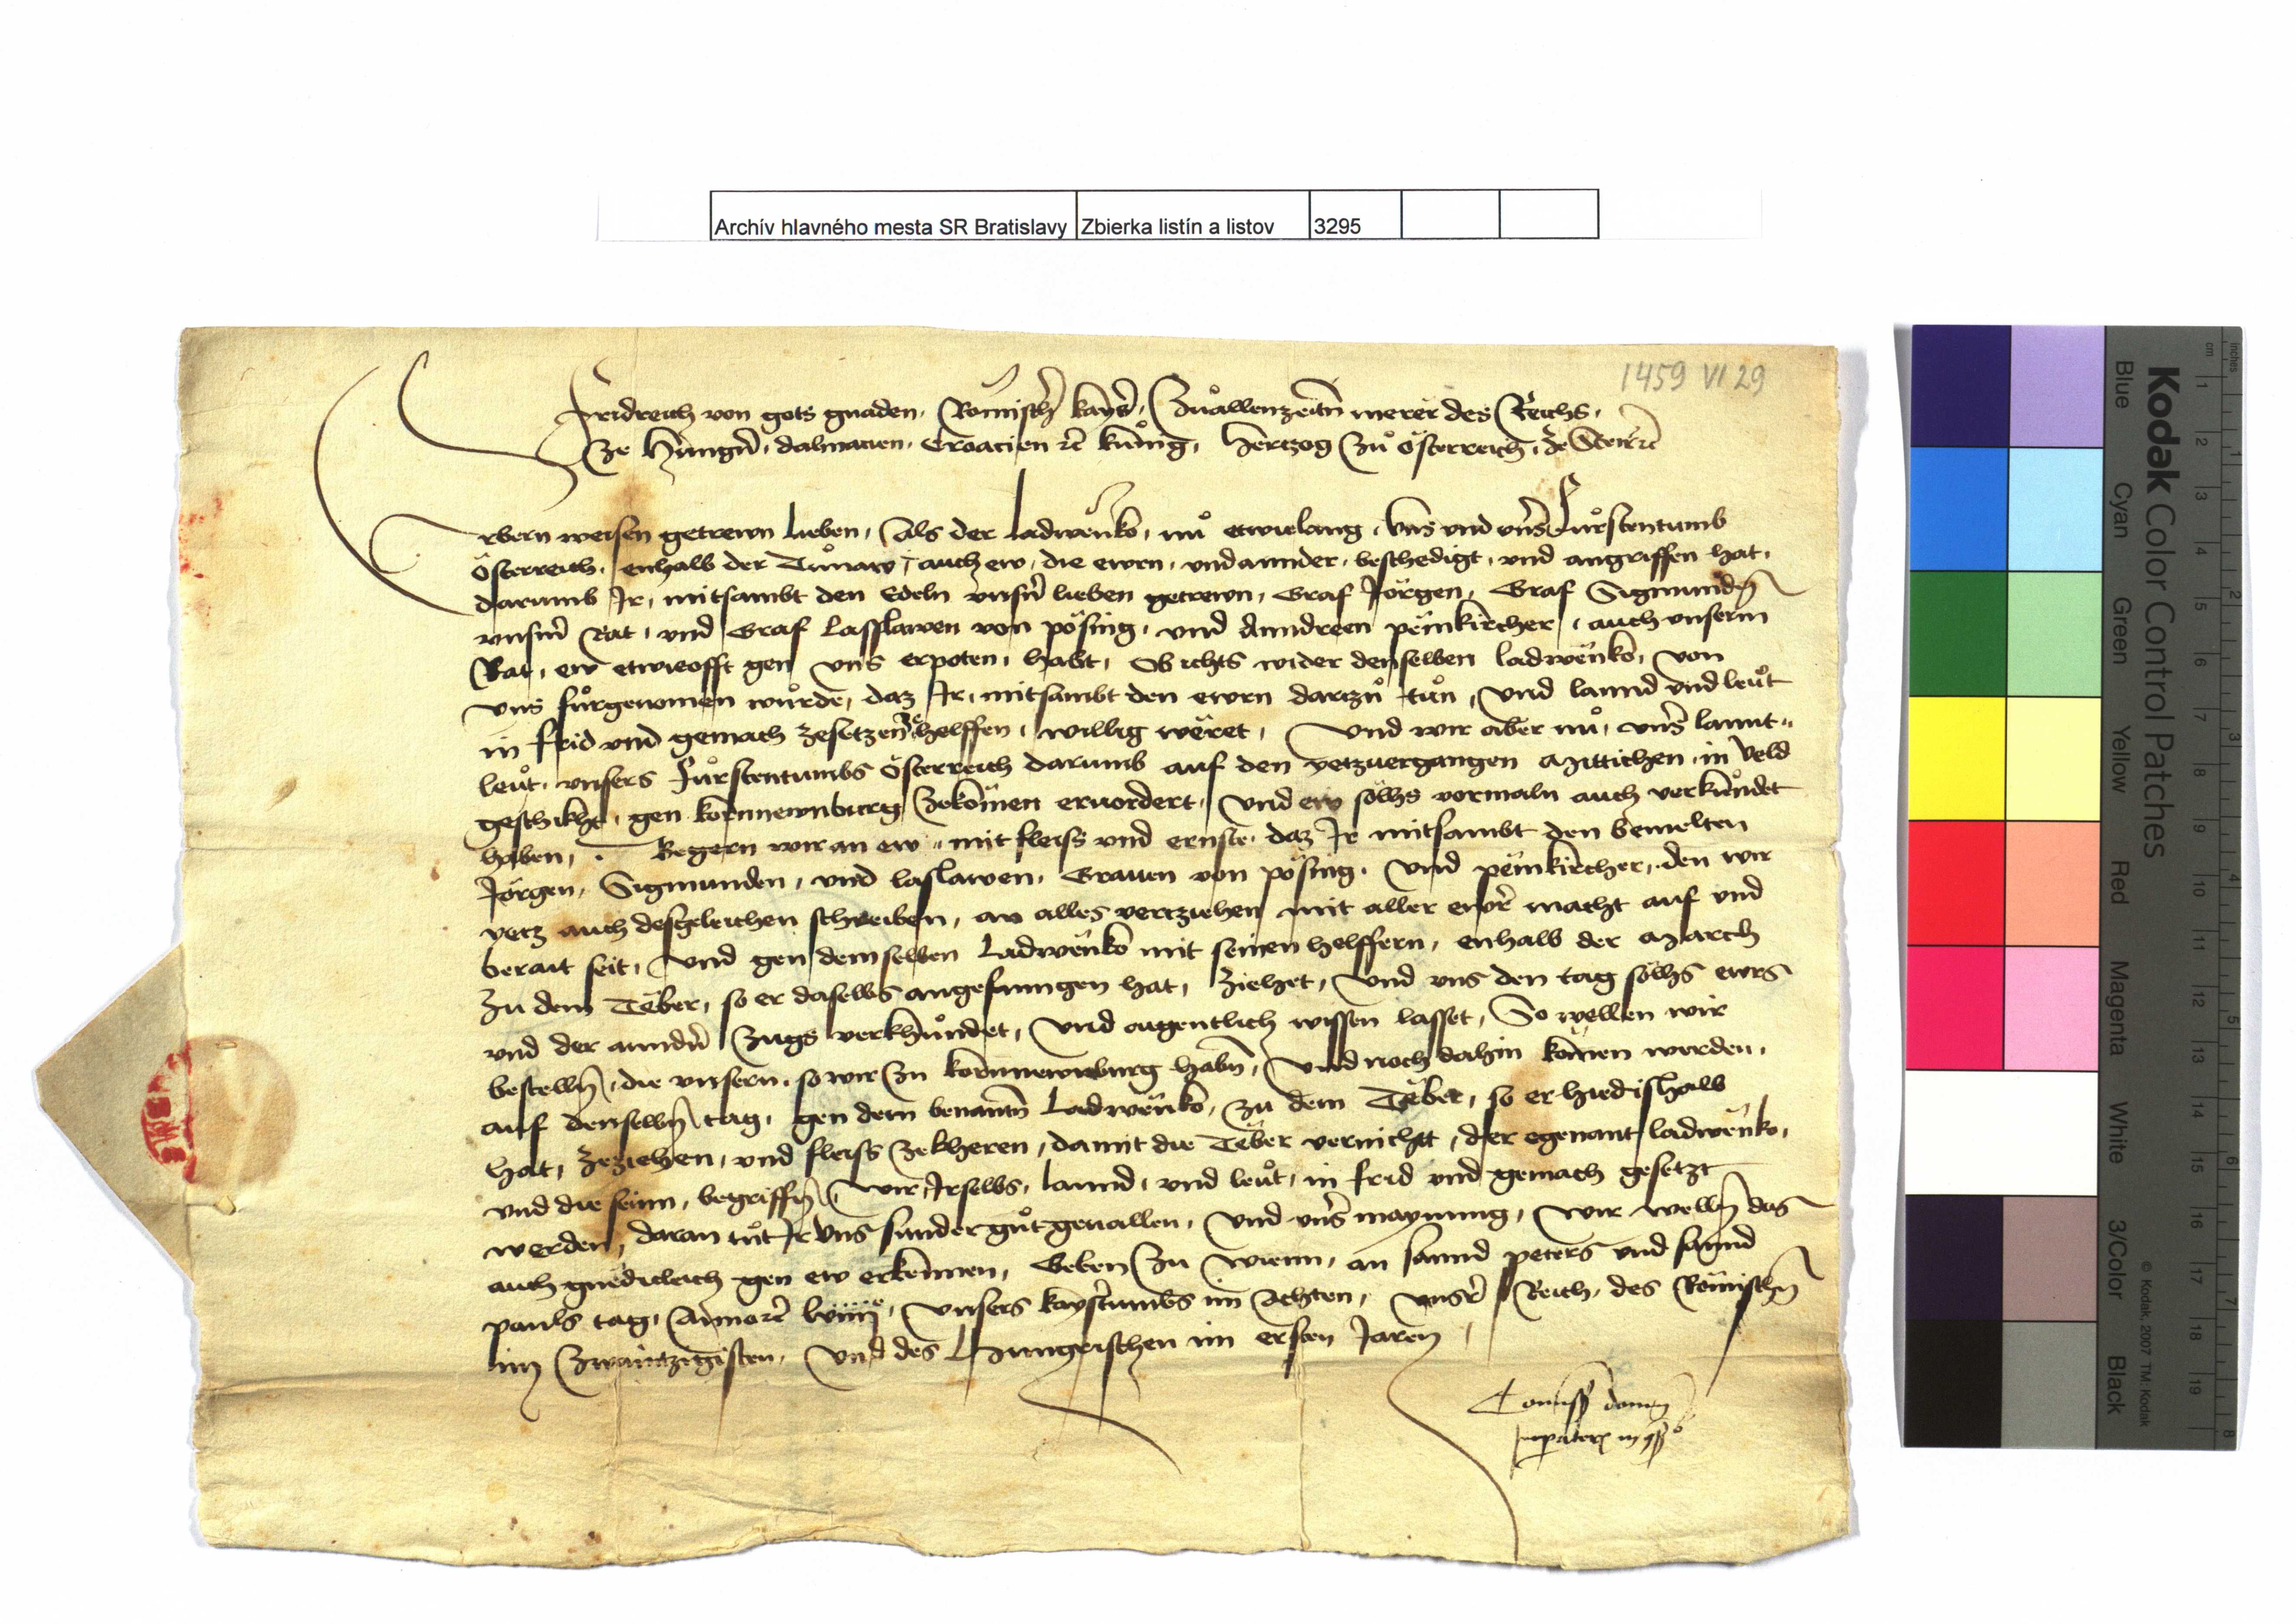 Archív hlavného mesta SR Bratislavy Zbierka listín a listov 3295
1459 VI 29
Fridreich von gots gnaden, Römischer kayser, Zuallenzeiten merer des Reichs,
Ze Hungern, dalmacien, Croacien etc kunig, Hertzog zu Österreich, ze Steir etc
Erbern weisen getrewn lieben, Als der ladwenko, nu etwielang, vns vnd vnser Furstentumb
Österreich, enhalb der Tunaw, auch ew, die ewrn, vnd annder, beschedigt, vnd angriffen hat,
darumb Ir, mitsambt den Edeln vnsern lieben getrewn, Graf Jörgen, Graf Sigmunden
vnserm Rat, vnd Graf lasslawen von pösing, vnd Anndreen pemkircher, auch vnserm
Rat, ew etwieofft gen vns erpoten, habt, Ob ichts wider denselben ladwenko, von
vns furgenomen wurde, daz Ir, mitsambt den ewrn dartzu tun, vnd lannd vnd leut
in frid vnd gemach zesetzen helffen, willig weret, Vnd wir aber nu, vnser lannt-
leut, vnsers Furstentumbs Österreich darumb auf den yetzuergangen Mittichen, in veld
geschikht, gen kornnewnburg zekomen eruordert, Vnd ew sölhs vormaln auch verkundet
haben, Begern wir an ew, mit fleiss vnd ernste, daz Ir mitsambt den bemelten
Jörgen, Sigmunden, vnd laslawen, Grauen von pösing, Vnd pemkircher, den wir
yetz auch desgeleichen schreiben, an alles vertziehen mit aller ewr macht auf vnd
berait seit, Vnd gen demselben Ladwenko mit seinen helffern, enhalb der March
zu dem Teber, so er daselbs angefanngen hat, ziehet, Vnd vns den tag sölhs ewrs
vnd der anndern zugs verkhundet, Vnd augentlich wissen lasset, So wellen wir
bestelln, die vnsern, so wir zu kornnewnburg haben, Vnd noch dahin komen werden,
auf denselben tag, gen dem benanten Ladwenko, zu dem Teber, so er hiedishalb
hat, zeziehen, vnd fleiss zekheren, damit die Teber vernicht, der egenant ladwenko,
vnd die seinn, begriffen, Wir, Irselbs, lannd, vnd leut, in frid vnd gemach gesetzt
werden, daran tut Ir vns sunder gut geuallen, Vnd vnser maynung, Wir welln das
auch gnediclich gen ew erkennen, Geben zu Wienn, an sannd peters vnd sannd
pauls tag, Anno etc lviiii°, Vnsers kaysertumbs im Achten, vnserr Reich, des Römischen
im zwaintzigisten, Vnd des Hungrischen im ersten Jaren,
Commissio domini
Imperatoris in consilio
Kodak Color Control Patches
Blue Cyan Green Yellow Red Magenta White 3/Color Black
© Kodak, 2007 TM: Kodak
inches 1 2 3 4 5 6 7 8
cm 1 2 3 4 5 6 7 8 9 10 11 12 13 14 15 16 17 18 19